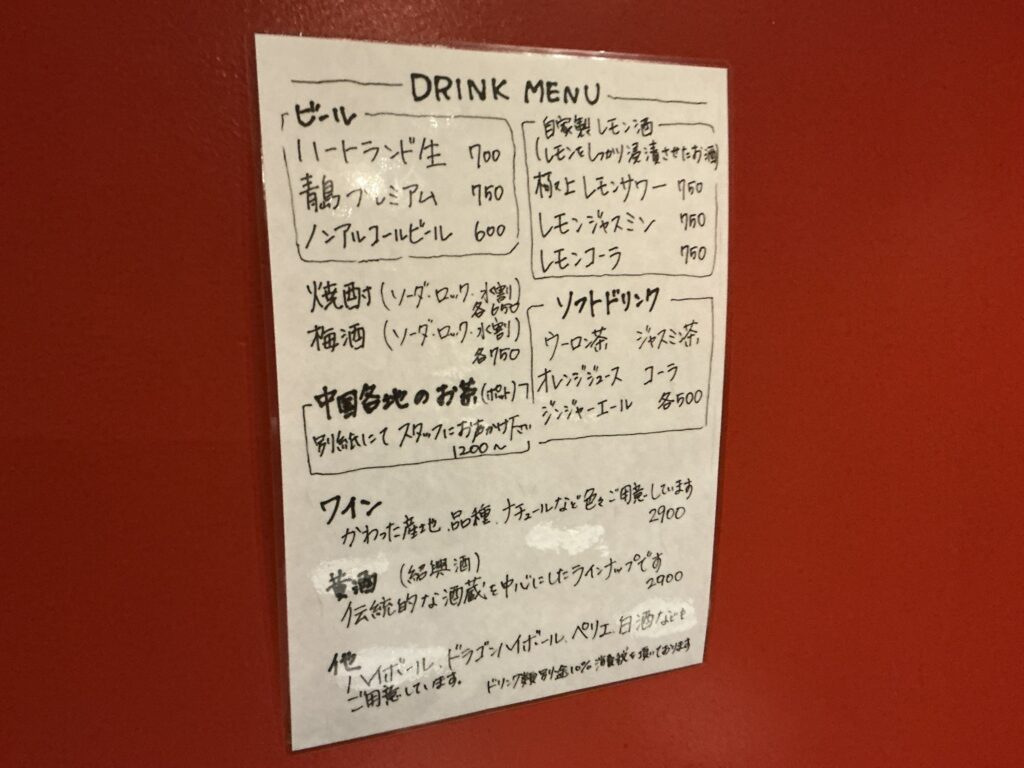 DRINK MENU
ビール
ハートランド生 700
青島プレミアム 750
ノンアルコールビール 600
焼酎(ソーダ・ロック・水割)
各650
梅酒(ソーダ・ロック・水割)
各750
中国各地のお茶(ポット)
別紙にて スタッフにお声かけ下さい
1200〜
自家製レモン酒
(レモンをしっかり浸漬させたお酒)
極上レモンサワー 750
レモンジャスミン 750
レモンコーラ 750
ソフトドリンク
ウーロン茶 ジャスミン茶
オレンジジュース コーラ
ジンジャーエール 各500
ワイン
かわった産地、品種、ナチュールなど色々ご用意しています
2900
黄酒(紹興酒)
伝統的な酒蔵を中心にしたラインナップです
2900
他
ハイボール、ドラゴンハイボール、ペリエ、白酒なども
ご用意しています。
ドリンク類別途10%消費税を頂いております